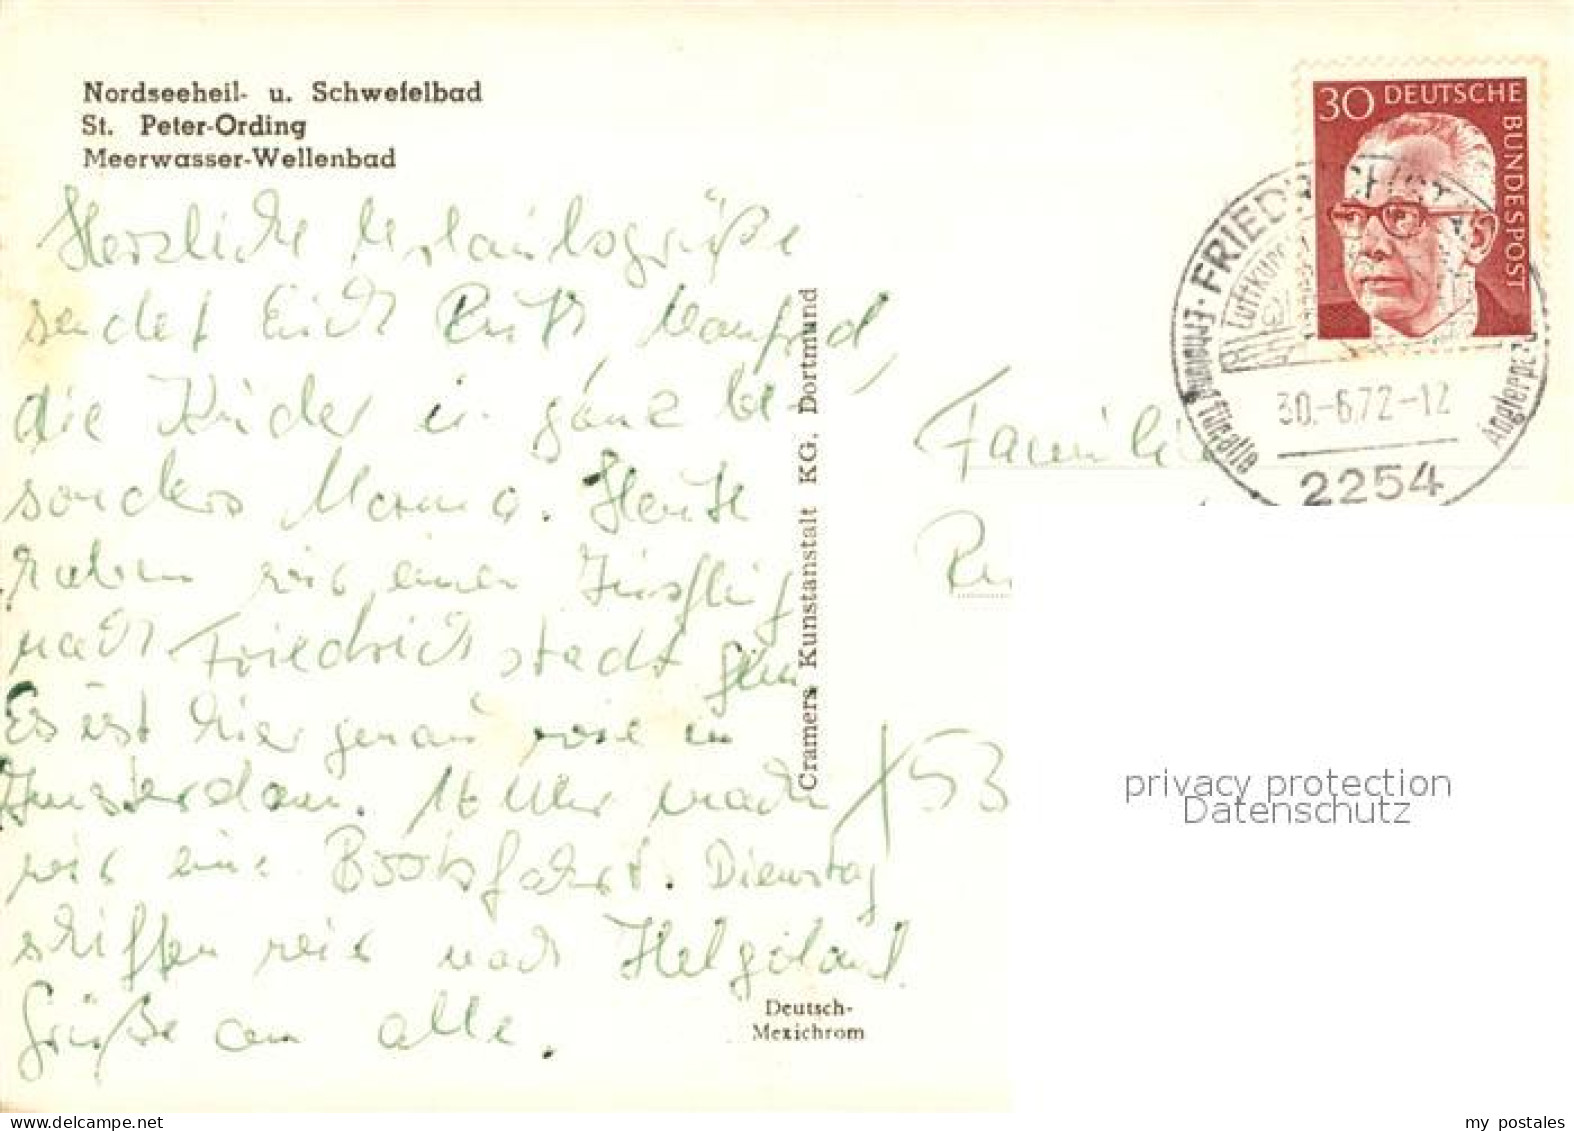 Nordseeheil- u. Schwefelbad
St. Peter-Ording
Meerwasser-Wellenbad
Herzliche Urlaubsgrüße
sendet Euch Ruth, Manfred,
die Kinder u. ganz be-
sonders Mama. Heute
haben wir einen Ausflug
nach Friedrichstadt gem
Es ist hier genau wie in
Amsterdam. Uhr machen
wir eine Bootsfahrt. Dienstag
schiffen wir nach Helgoland.
Grüße an alle.
Cramers Kunstanstalt KG. Dortmund
Deutsch-
Mexichrom
30 DEUTSCHE
BUNDESPOST
FRIEDRICHST
Luftkuro
Erholung für alle
Anglerpar
30.-6.72-12
2254
Familie
53
privacy protection
Datenschutz
my postales